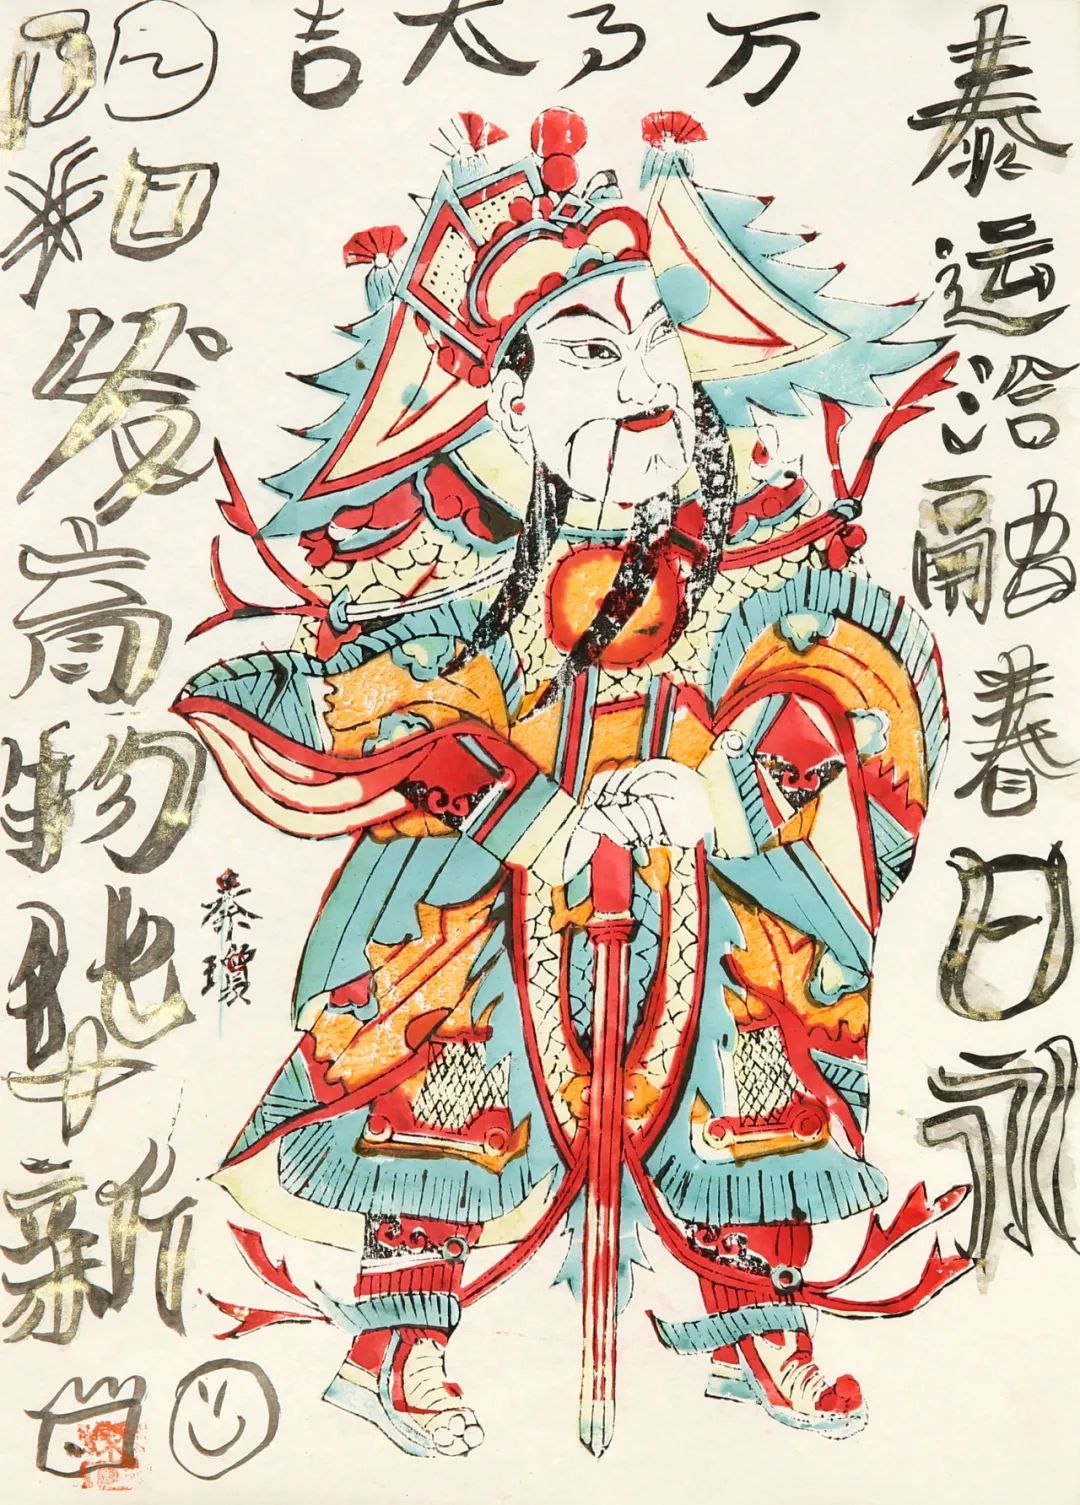 万事大吉
泰运洽融春日永
阳和发育物华新
秦瓊